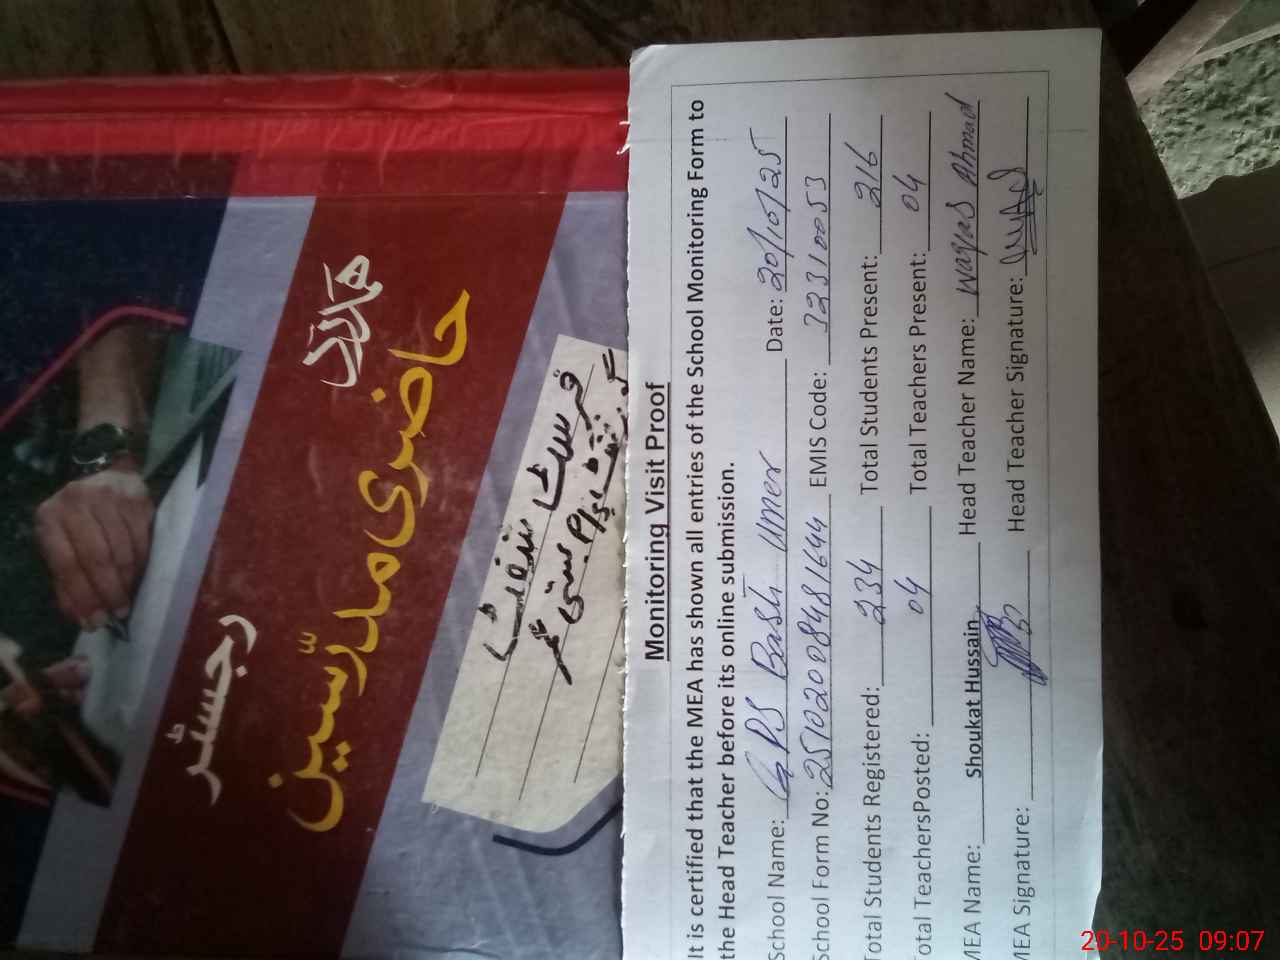 ہمارا
رجسٹر
حاضری مدرّسین
گورنمنٹ پرائمری بستی عمر
Monitoring Visit Proof
It is certified that the MEA has shown all entries of the School Monitoring Form to
the Head Teacher before its online submission.
School Name: GPS Basti Umer Date: 20/10/25
School Form No: 25102008481644 EMIS Code: 32310053
Total Students Registered: 234 Total Students Present: 216
Total TeachersPosted: 04 Total Teachers Present: 04
MEA Name: Shoukat Hussain Head Teacher Name: Waqas Ahmad
MEA Signature: Head Teacher Signature:
20-10-25 09:07